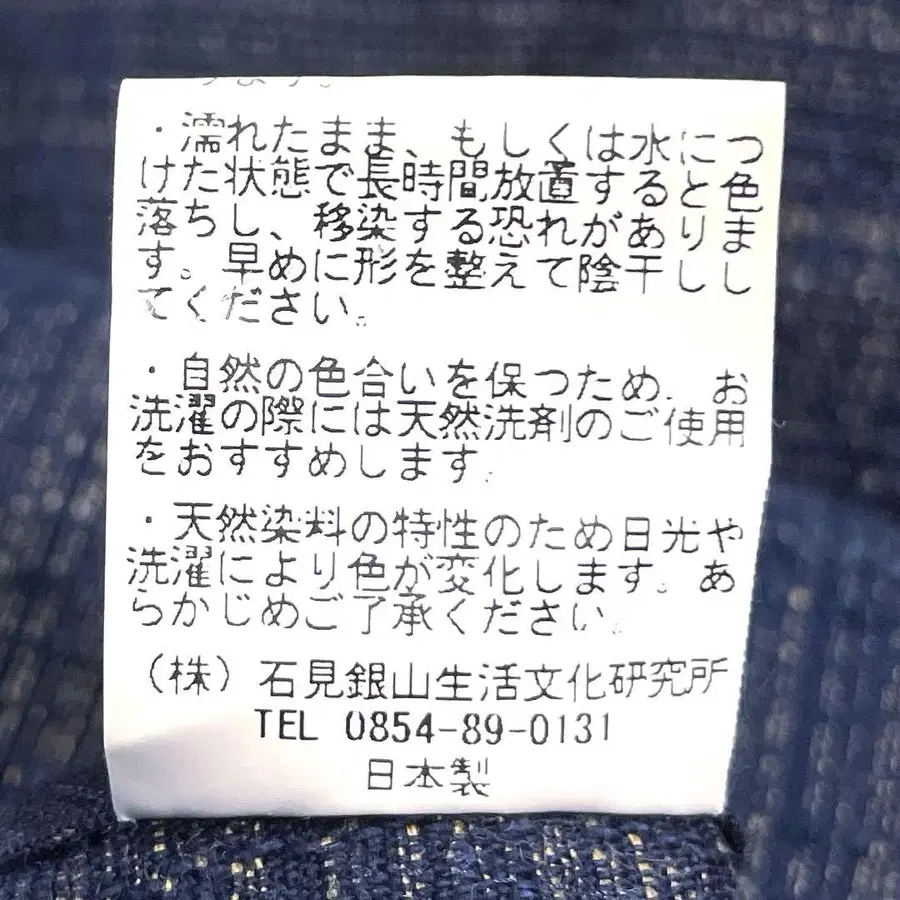 ・濡れたまま、もしくは水につ
けた状態で長時間放置すると色
落ちし、移染する恐れがありま
す。早めに形を整えて陰干しし
てください。
・自然の色合いを保つため、お
洗濯の際には天然洗剤のご使用
をおすすめします。
・天然染料の特性のため日光や
洗濯により色が変化します。あ
らかじめご了承ください。
(株)石見銀山生活文化研究所
TEL 0854-89-0131
日本製